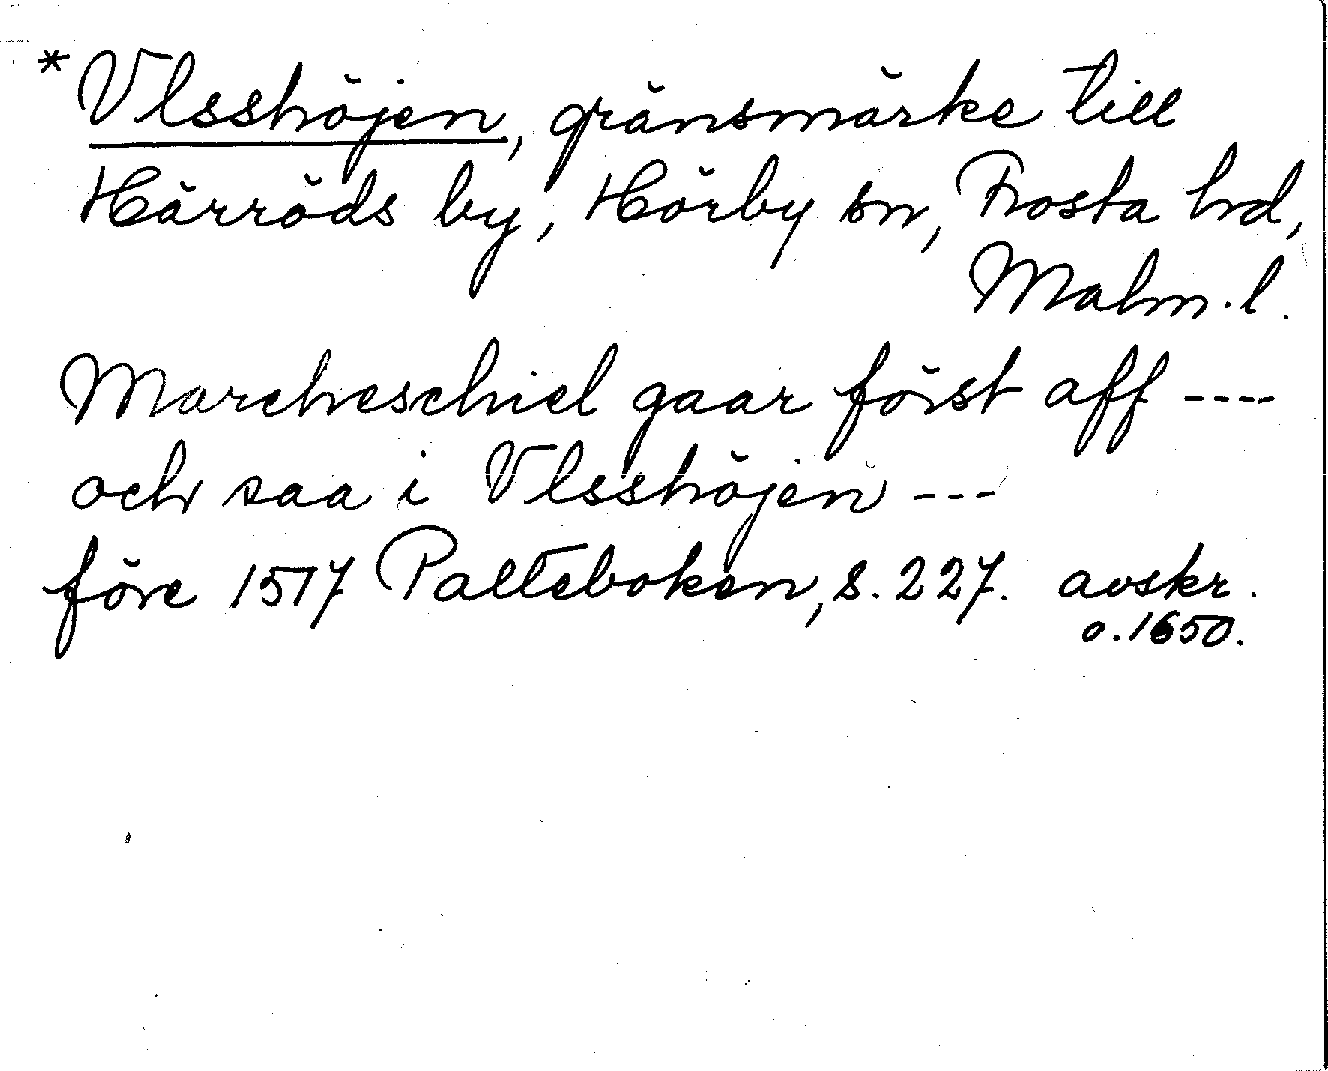 *Vlsshöjen, gränsmärke till
Härröds by, Hörby sn, Frosta hd,
Malm.l.
Marcheschiel gaar först aff ----
och saa i Vlsshöjen ---
före 1517 Palteboken, s. 227. avskr.
o. 1650.